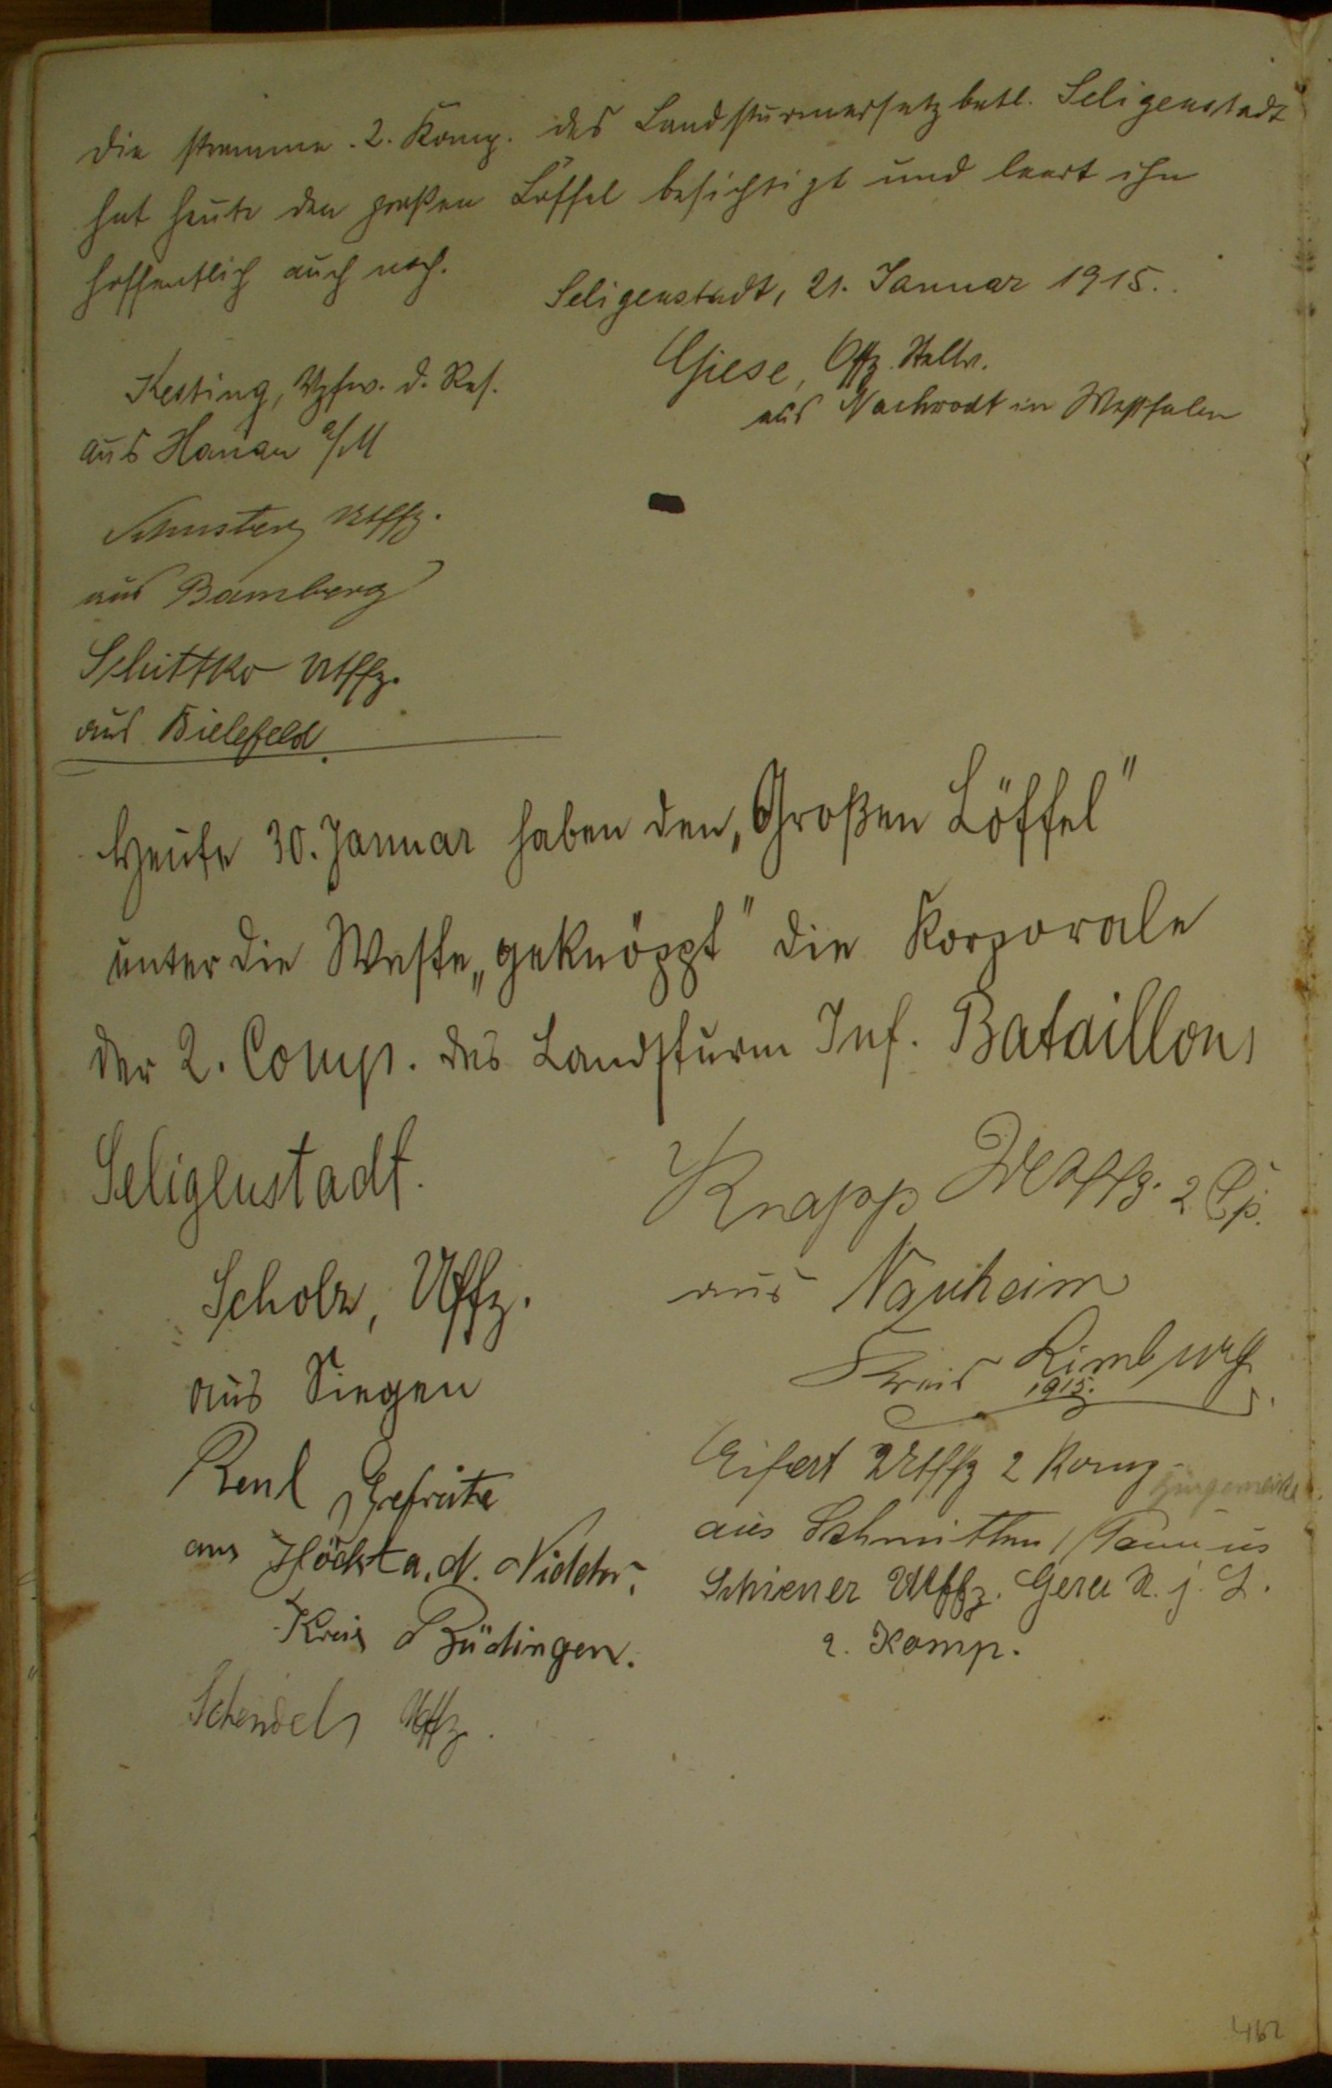 Die stramme 2. Komp. des Landsturmersatzbatl. Seligenstadt
hat heute den großen Löffel besichtigt und leert ihn
hoffentlich auch noch.
Seligenstadt, 21. Januar 1915.
Giese, Offz. Stellv.
aus Nachrodt in Westfalen
Kesting, Vzfw. d. Res.
aus Hanau a/M
Schuster Utffz.
aus Bamberg
Schittko Utffz.
aus Bielefeld.
Heute 30. Januar haben den „Großen Löffel"
unter die Weste „geknöppt" die Korporale
der 2. Comp. des Landsturm Inf. Bataillons
Seligenstadt.
Scholz, Uffz.
aus Siegen
Gefreite
aus Höchst a. d. Nidder.
Kreis Büdingen.
Schendel Utffz.
Knapp Utoffz. 2 Cp.
aus Nauheim
Kreis Limburg
1915.
Eifert Utffz 2 Komp.
aus Schmitten / Taunus
Schiener Utffz. Gera R. j. L.
2. Komp.
462